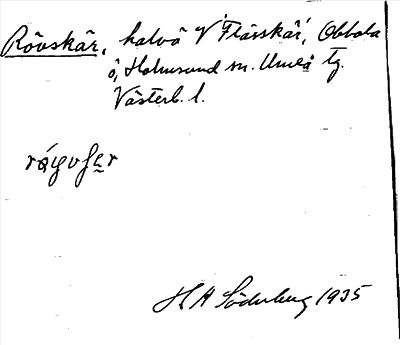 Rövskär, halvö V Flasskär, Obbola
ö, Holmsund sn. Umeå tg.
Västerb. l.
H A Söderberg 1935